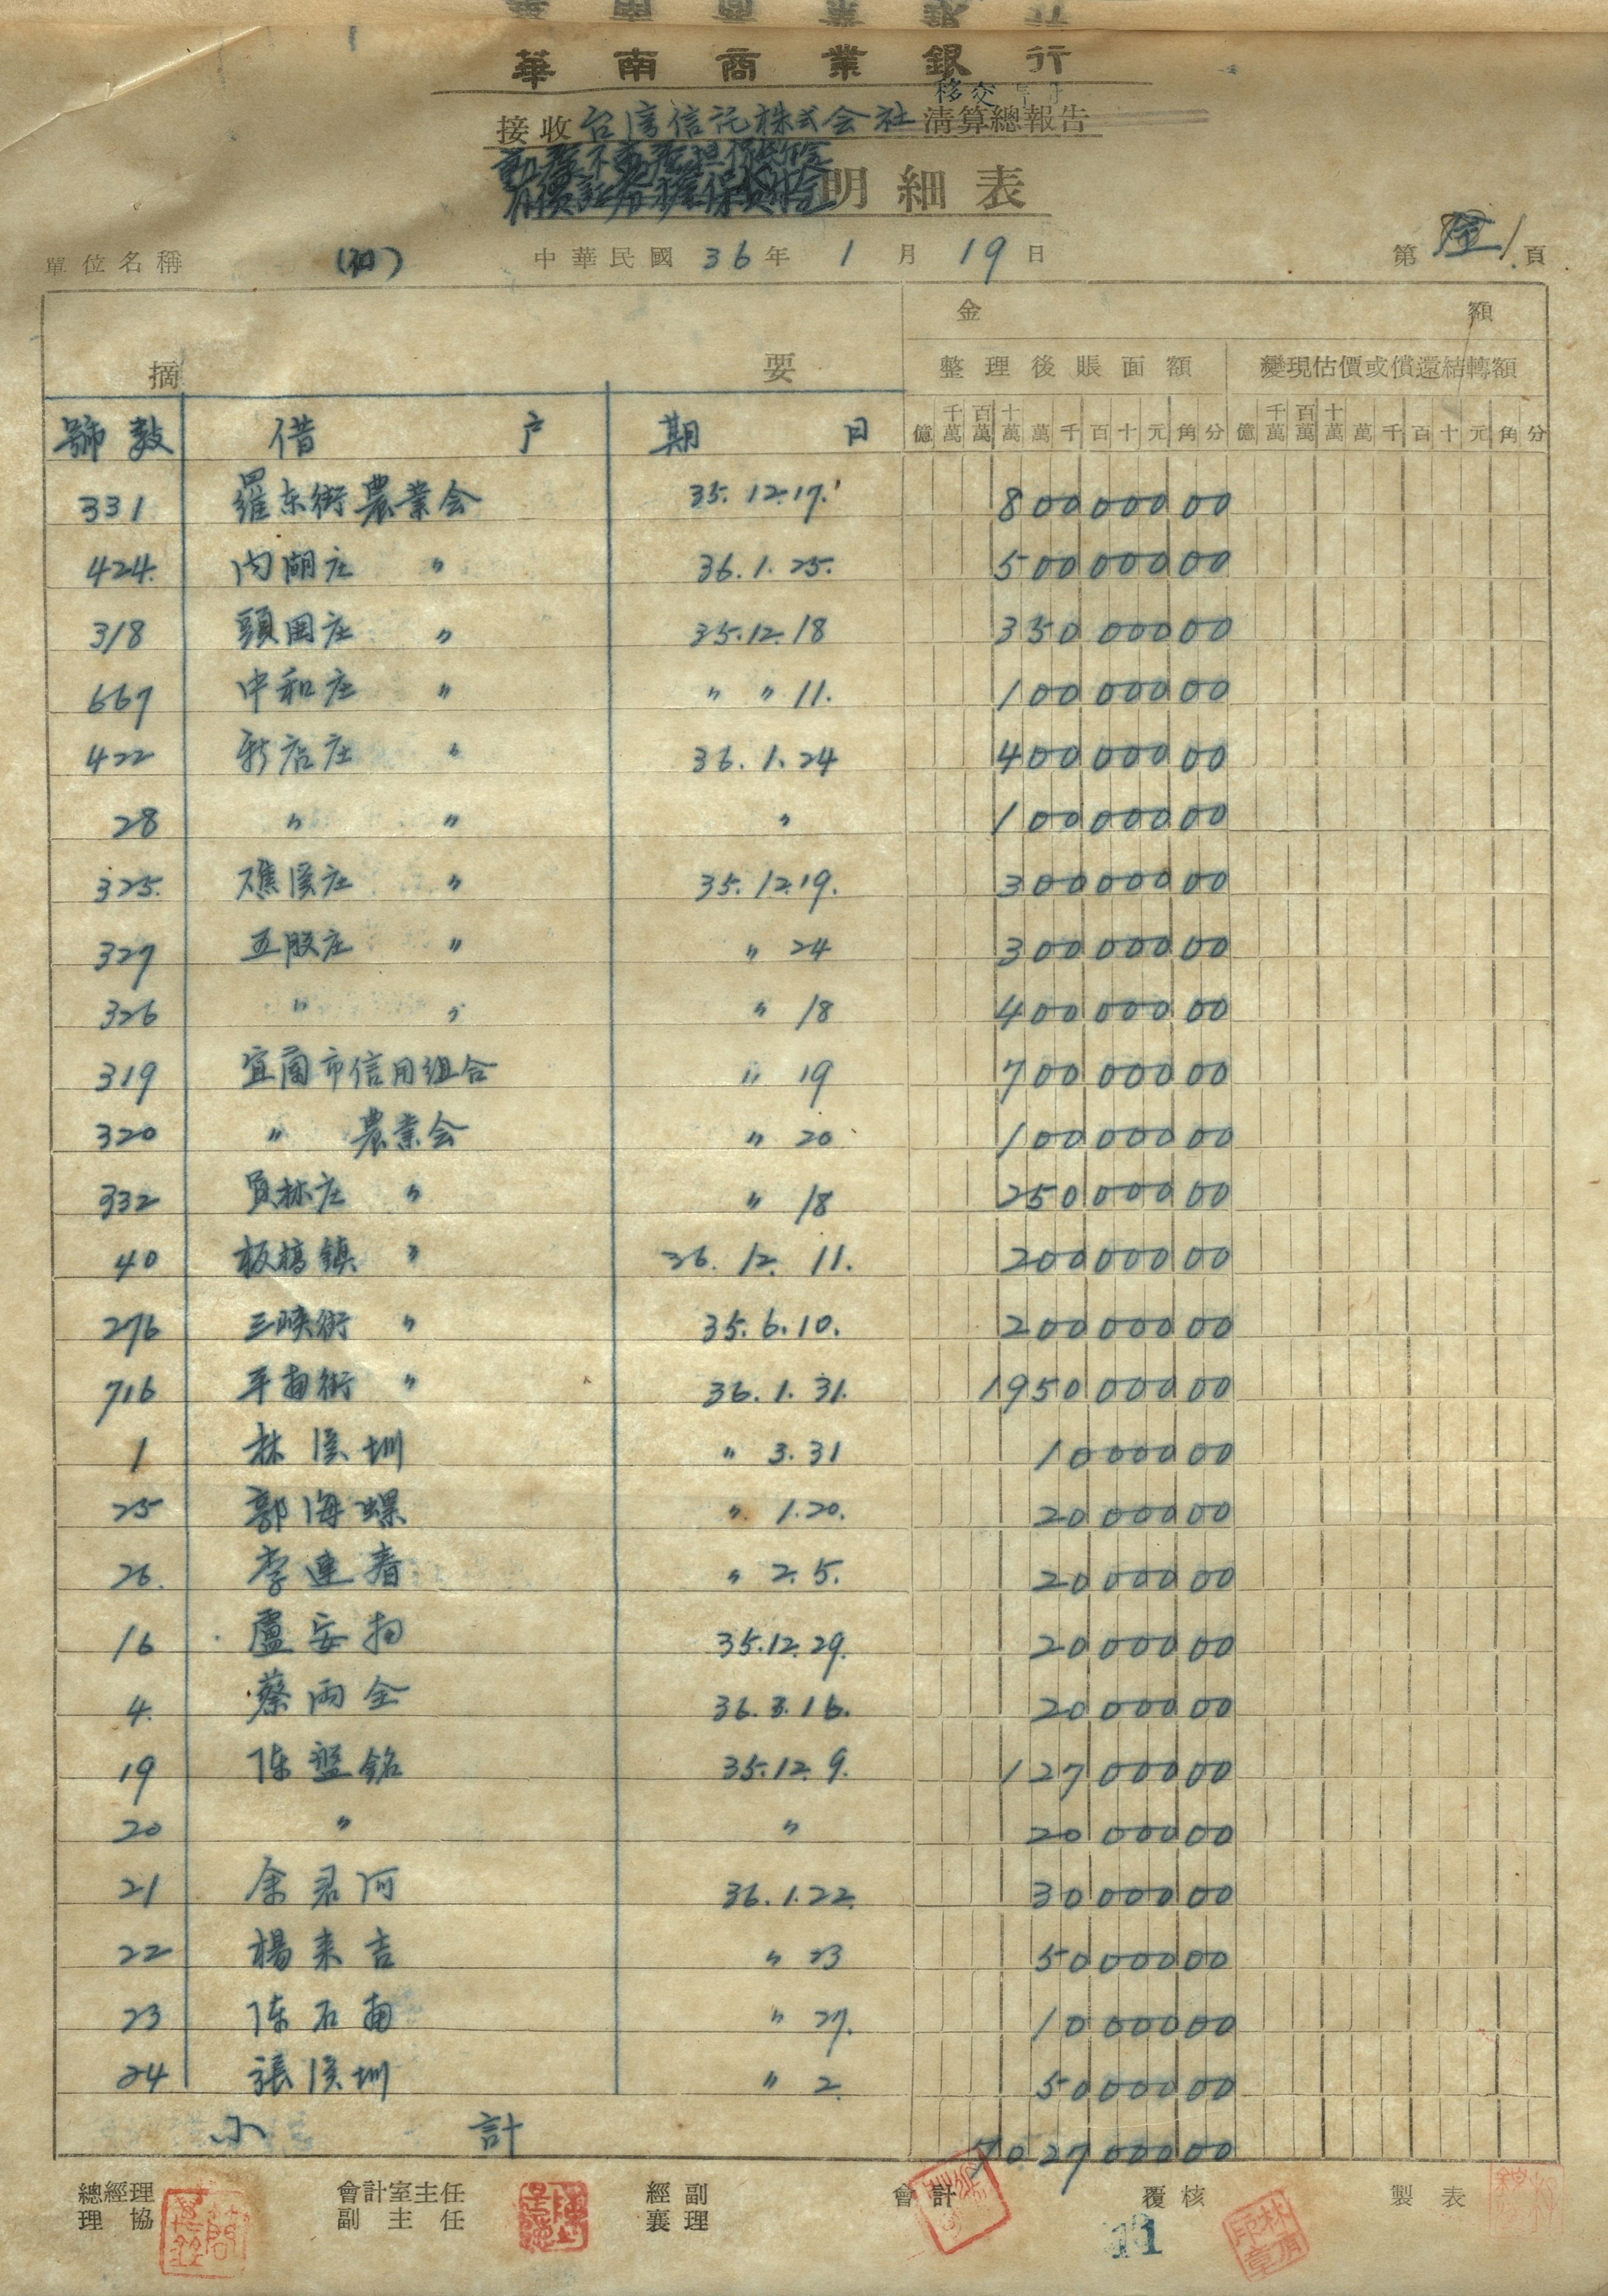 華南商業銀行
移交
接收台湾信託株式会社清算總報告
明細表
單位名稱 中華民國36年1月19日 第1頁
金額
摘要 整理後賬面額 變現估價或償還結轉額
號數 借户 期日 億 千萬 百萬 十萬 萬 千 百 十 元 角 分 億 千萬 百萬 十萬 萬 千 百 十 元 角 分
331 羅东街農業会 35.12.17. 80000000
424. 内湖庄 〃 36.1.25. 50000000
318 頭囲庄 〃 35.12.18 35000000
667 中和庄 〃 〃 〃 11. 10000000
422 新店庄 〃 36.1.24 40000000
28 〃 〃 〃 10000000
325. 礁溪庄 〃 35.12.19. 30000000
327 五股庄 〃 〃 24 30000000
326 〃 〃 〃 18 40000000
319 宜蘭市信用组合 〃 19 70000000
320 〃 農業会 〃 20 10000000
332 員林庄 〃 〃 18 25000000
40 板橋鎮 〃 36.12.11. 20000000
276 三峡街 〃 35.6.10. 20000000
716 平南街 〃 36.1.31. 195000000
1 林溪圳 〃 3.31 1000000
25 郭海螺 〃 1.20. 2000000
26. 李連春 〃 2.5. 2000000
16 盧安 35.12.29. 2000000
4. 蔡両全 36.3.16. 2000000
19 陈盤銘 35.12.9. 12700000
20 〃 〃 2000000
21 余君河 36.1.22. 3000000
22 楊来吉 〃 23 5000000
23 陈石南 〃 27. 1000000
24 張溪圳 〃 2. 5000000
小計 702700000
總經理 會計室主任 經副 會計 覆核 製表
理協 副主任 襄理
11